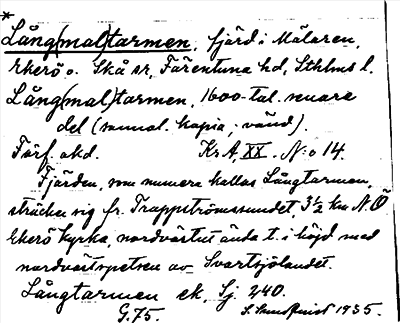 *
Lång(mal)tarmen, fjärd i Mälaren,
Ekerö o. Skå sr, Färentuna hd, Sthlms l.
Lång(mal)tarmen, 1600-tal. senare
del (samal. kapia; vänd).
Förf. okd. Kr A, XX. N:o 14.
Fjärden, som numera kallas Långtarmen,
sträcker sig fr. Trappströmssundet, 3½ km N.Ö
Ekerö kyrka, nordvästut ända t. i höjd med
nordvästspetsen av Svartsjölandet.
Långtarmen ek, Sj. 240.
G.75. S. Sundquist 1935.